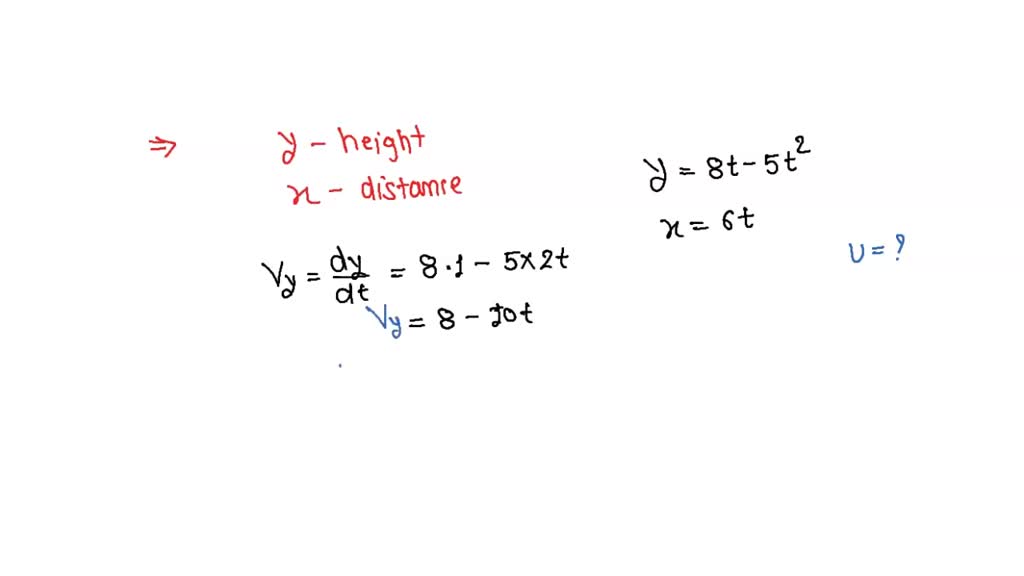 ⇒ y - height
x - distance
y = 8t - 5t²
x = 6t
u = ?
Vy = dy/dt = 8·1 - 5×2t
Vy = 8 - 10t